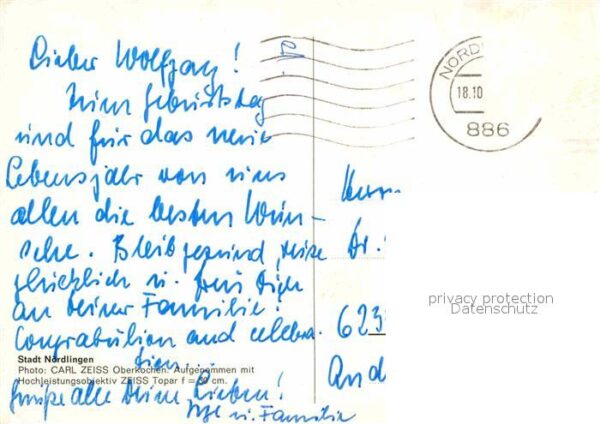 Lieber Wolfgang!
Zum Geburtstag
und für das neue
Lebensjahr von uns
allen die besten Wün-
sche. Bleib gesund, reise
glücklich u. freu Dich
an Deiner Familie!
Congratulation and celebra-
tion...
Grüße alle Deine Lieben!
u. Familie
NORD
18.10
886
Herrn
Dr.
623
And
privacy protection
Datenschutz
Stadt Nördlingen
Photo: CARL ZEISS Oberkochen. Aufgenommen mit
Hochleistungsobjektiv ZEISS Topar f = cm.